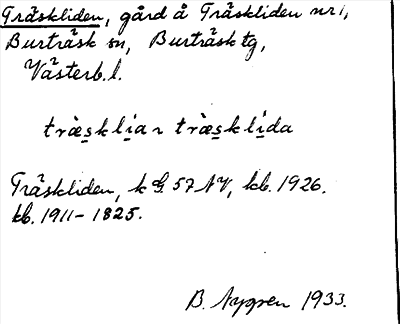 Träskliden, gård å Träskliden nr 1,
Burträsk sn, Burträsk tg,
Västerb. l.
træ̀sklian træ̀sklida
Träskliden, k G. 57 NV, kb. 1926.
kb. 1911-1825.
B. Nygren 1933.